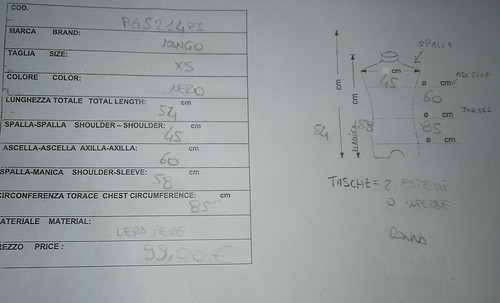 COD. PG5214PI
MARCA BRAND: MANGO
TAGLIA SIZE: XS
COLORE COLOR: NERO
LUNGHEZZA TOTALE TOTAL LENGTH: 54 cm
SPALLA-SPALLA SHOULDER – SHOULDER: 45 cm
ASCELLA-ASCELLA AXILLA-AXILLA: 60 cm
SPALLA-MANICA SHOULDER-SLEEVE: 58 cm
CIRCONFERENZA TORACE CHEST CIRCUMFERENCE: 85 cm
ATERIALE MATERIAL: VERA PELLE
REZZO PRICE : 99,00 €
SPALLA
cm
45
ø cm ASCELLA
60
cm cm
ø cm TORACE
54 MANICA 58 85
ø cm
TASCHE = 2 ESTERNE
0 INTERNE
DONNA